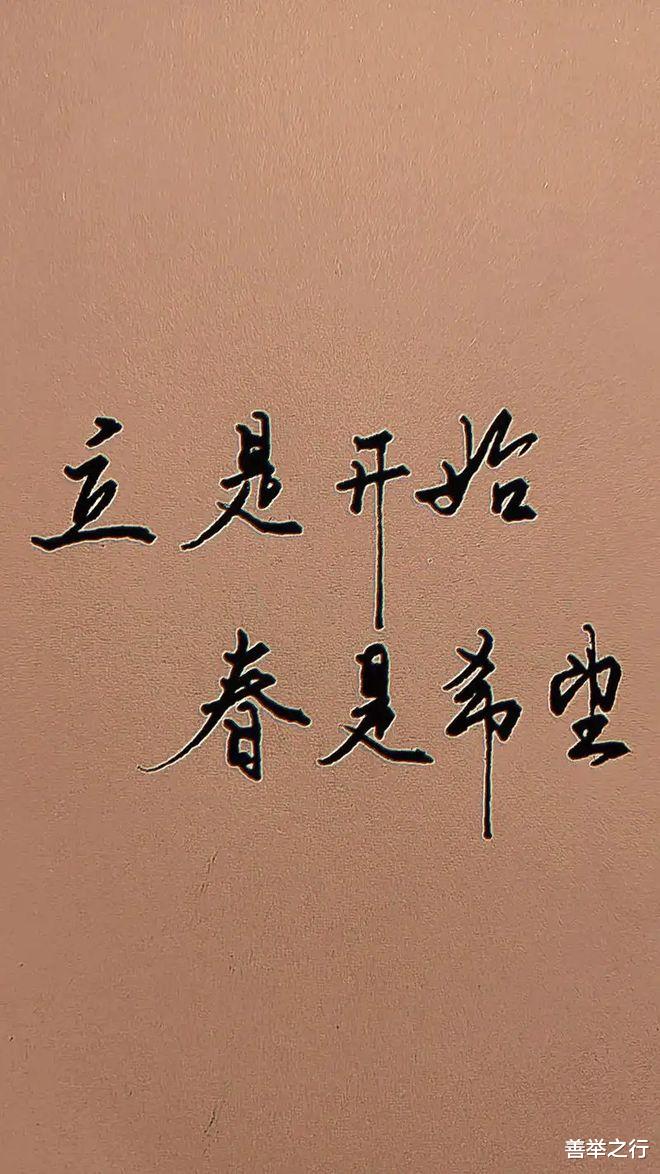 立是开始
春是希望
善举之行